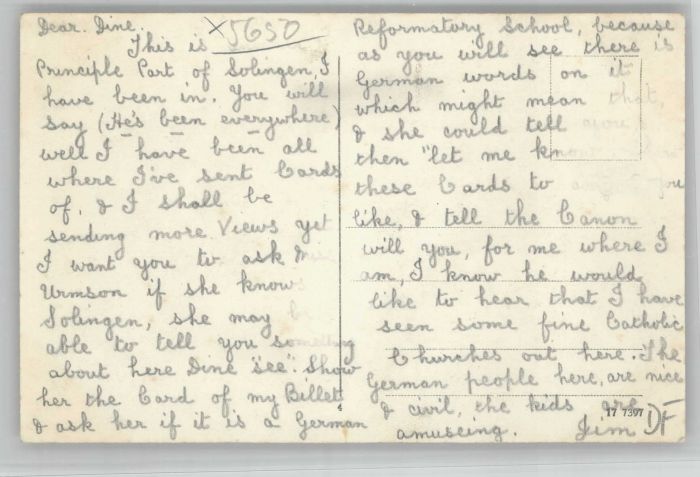 Dear. Dine.
x5650
This is
Principle Part of Solingen, I
have been in. You will
say (He's been everywhere)
well I have been all
where I've sent Cards
of, & I shall be
sending more Views yet
I want you to ask Miss
Urmson if she knows
Solingen, she may be
able to tell you something
about here Dine "see". Show
her the Card of my Billet
& ask her if it is a German
Reformatory School, because
as you will see there is
German words on it
which might mean that,
& she could tell you,
then "let me know
these Cards to you
like, & tell the Canon
will you, for me where I
am, I know he would
like to hear that I have
seen some fine Catholic
Churches out here. The
German people here, are nice
& civil, the kids are
amuseing. Jim
4
17 7397
DF